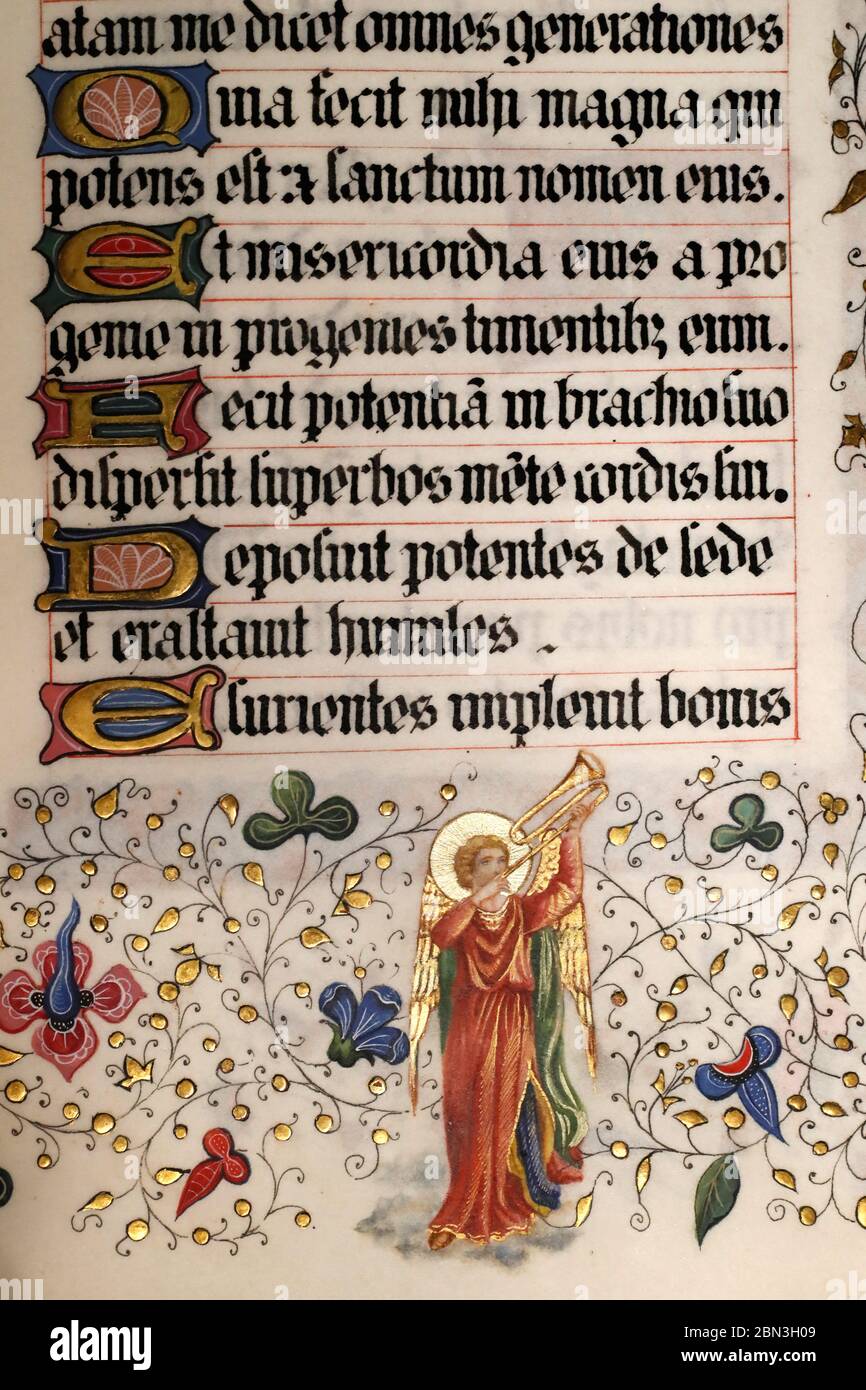 atam me dicet omnes generationes
Quia fecit mihi magna qui
potens est: ⁊ sanctum nomen eius.
Et misericordia eius a pro
genie in progenies timentibꝫ eum.
Fecit potentiā in brachio suo
dispersit superbos mēte cordis sui.
Deposuit potentes de sede
et exaltauit humiles.
Esurientes impleuit bonis
alamy
Image ID: 2BN3H09
www.alamy.com